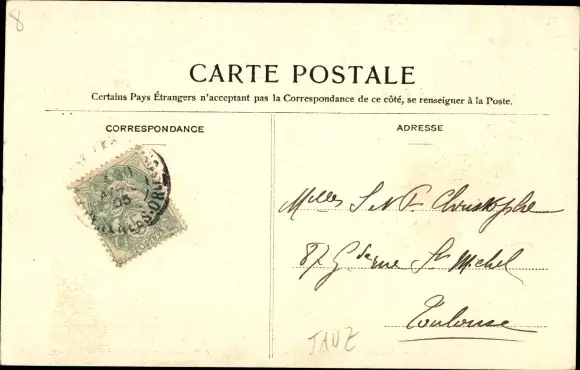 8
CARTE POSTALE
Certains Pays Étrangers n'acceptant pas la Correspondance de ce côté, se renseigner à la Poste.
CORRESPONDANCE
ADRESSE
05
Mlles S et P. Christophe
87 Gde rue St Michel
Toulouse
JAUZ